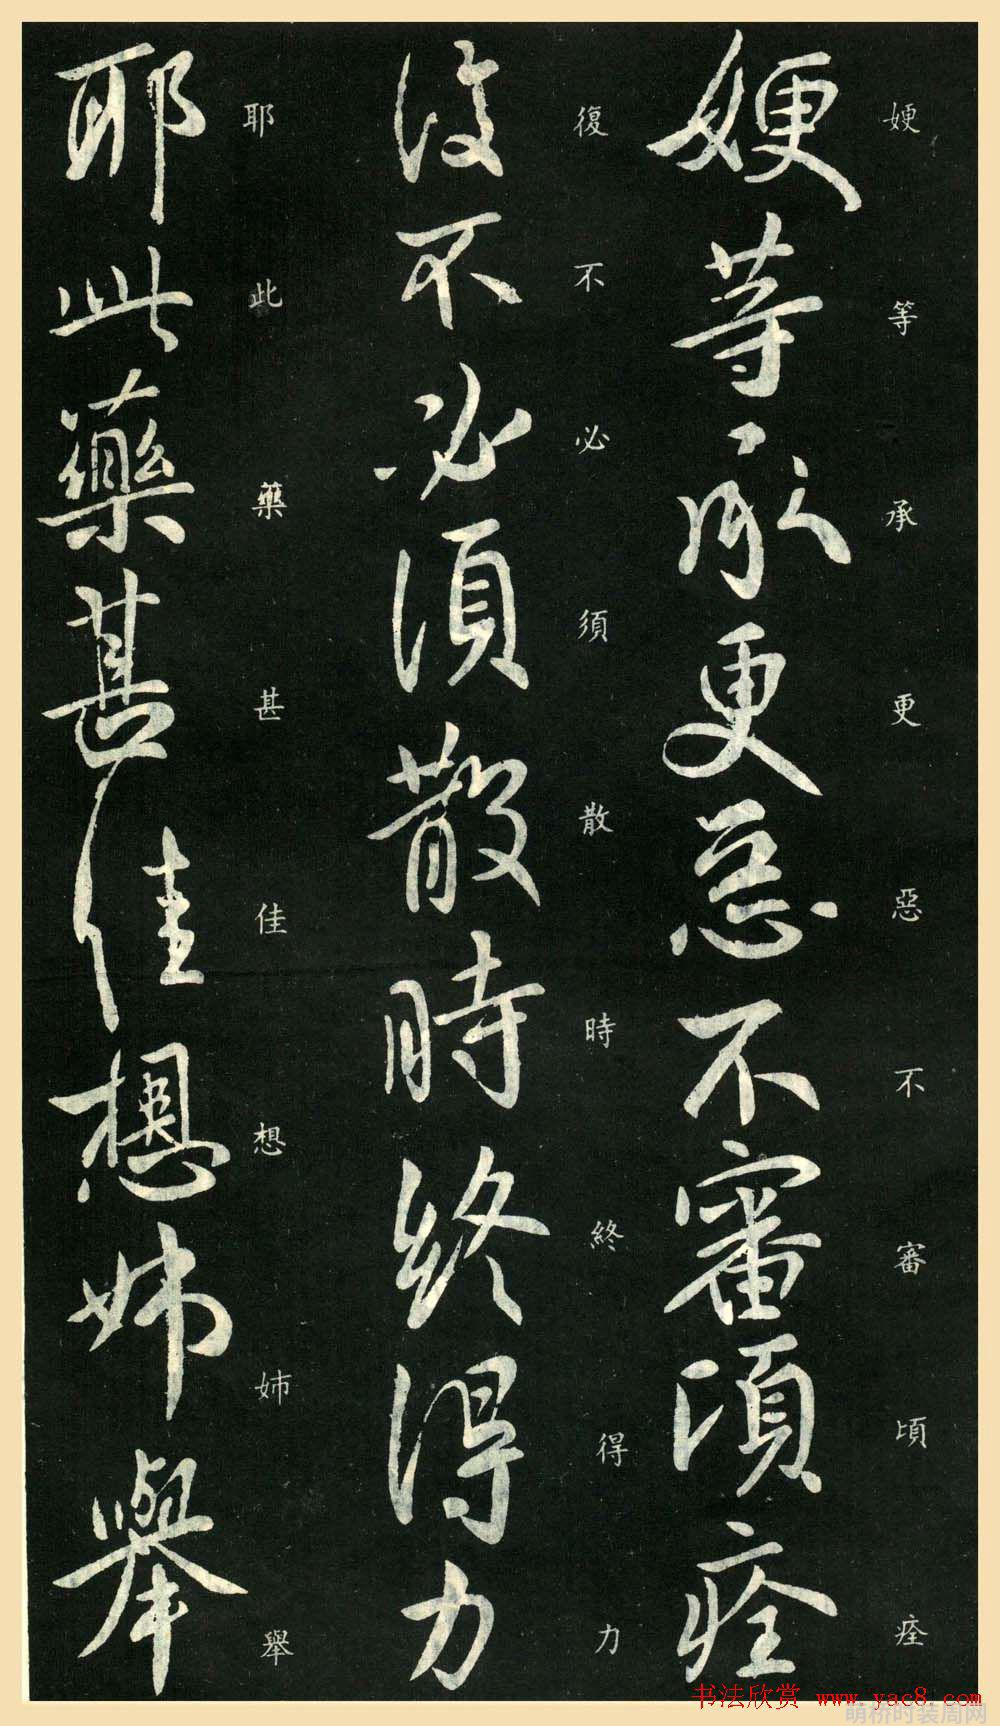 㛐等承更惡不審頃痊
復不必須散時終得力
耶此藥甚佳想姊舉
㛐等承更惡不審頃痊
復不必須散時終得力
耶此藥甚佳想姊舉
书法欣赏 www.yac8.com
萌桥时装周网